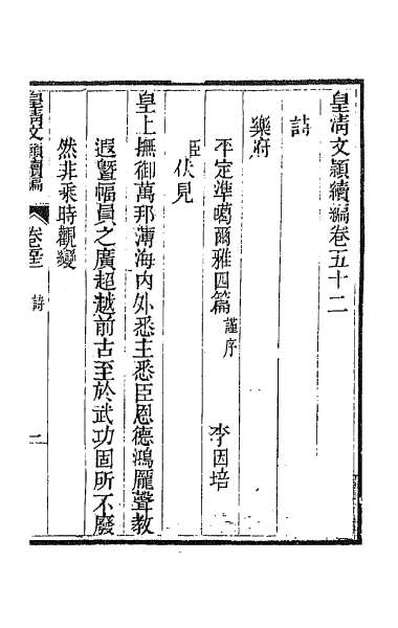 皇清文穎續編卷五十二
詩
樂府
平定準噶爾雅四篇謹序 李因培
臣伏見
皇上撫御萬邦薄海內外悉主悉臣恩德鴻龐聲教
遐暨幅員之廣超越前古至於武功固所不廢
然非乘時觀變
皇清文穎續編 卷五十二 詩 一